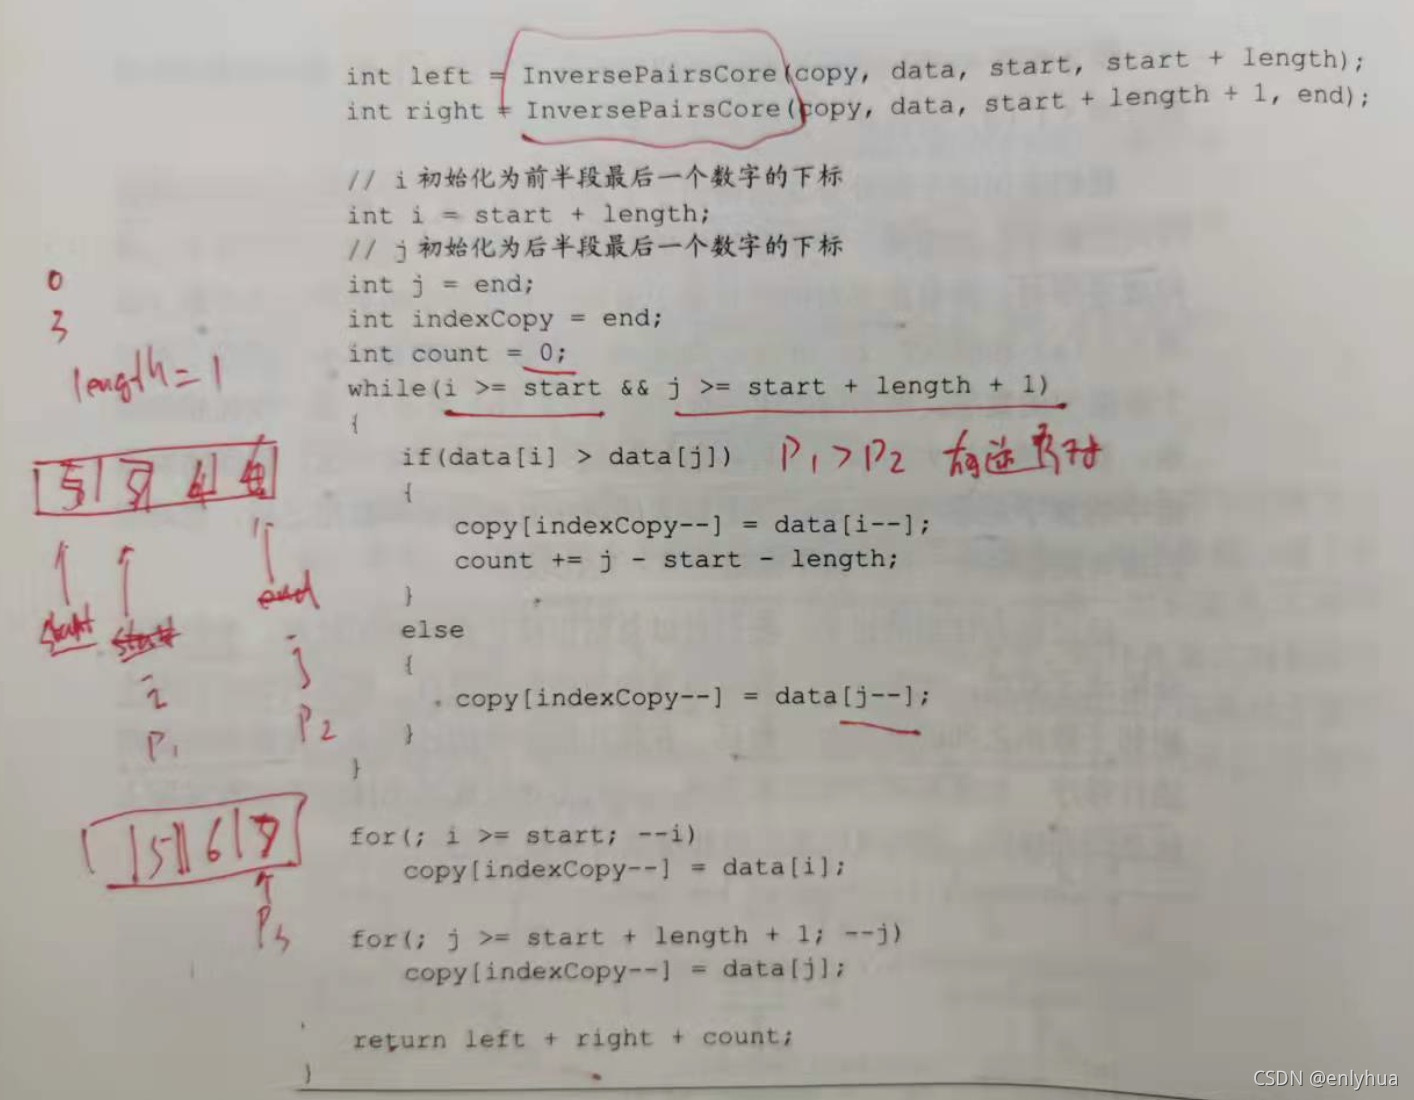 int left = InversePairsCore(copy, data, start, start + length);
int right = InversePairsCore(copy, data, start + length + 1, end);
// i 初始化为前半段最后一个数字的下标
int i = start + length;
// j 初始化为后半段最后一个数字的下标
0
int j = end;
3
int indexCopy = end;
int count = 0;
length = 1
while(i >= start && j >= start + length + 1)
{
if(data[i] > data[j]) P1 > P2 有逆序对
5
{
copy[indexCopy--] = data[i--];
count += j - start - length;
end
}
start start
else
{
i j
copy[indexCopy--] = data[j--];
P1 P2
}
}
5 6 7
for(; i >= start; --i)
copy[indexCopy--] = data[i];
P3
for(; j >= start + length + 1; --j)
copy[indexCopy--] = data[j];
return left + right + count;
}
CSDN @enlyhua